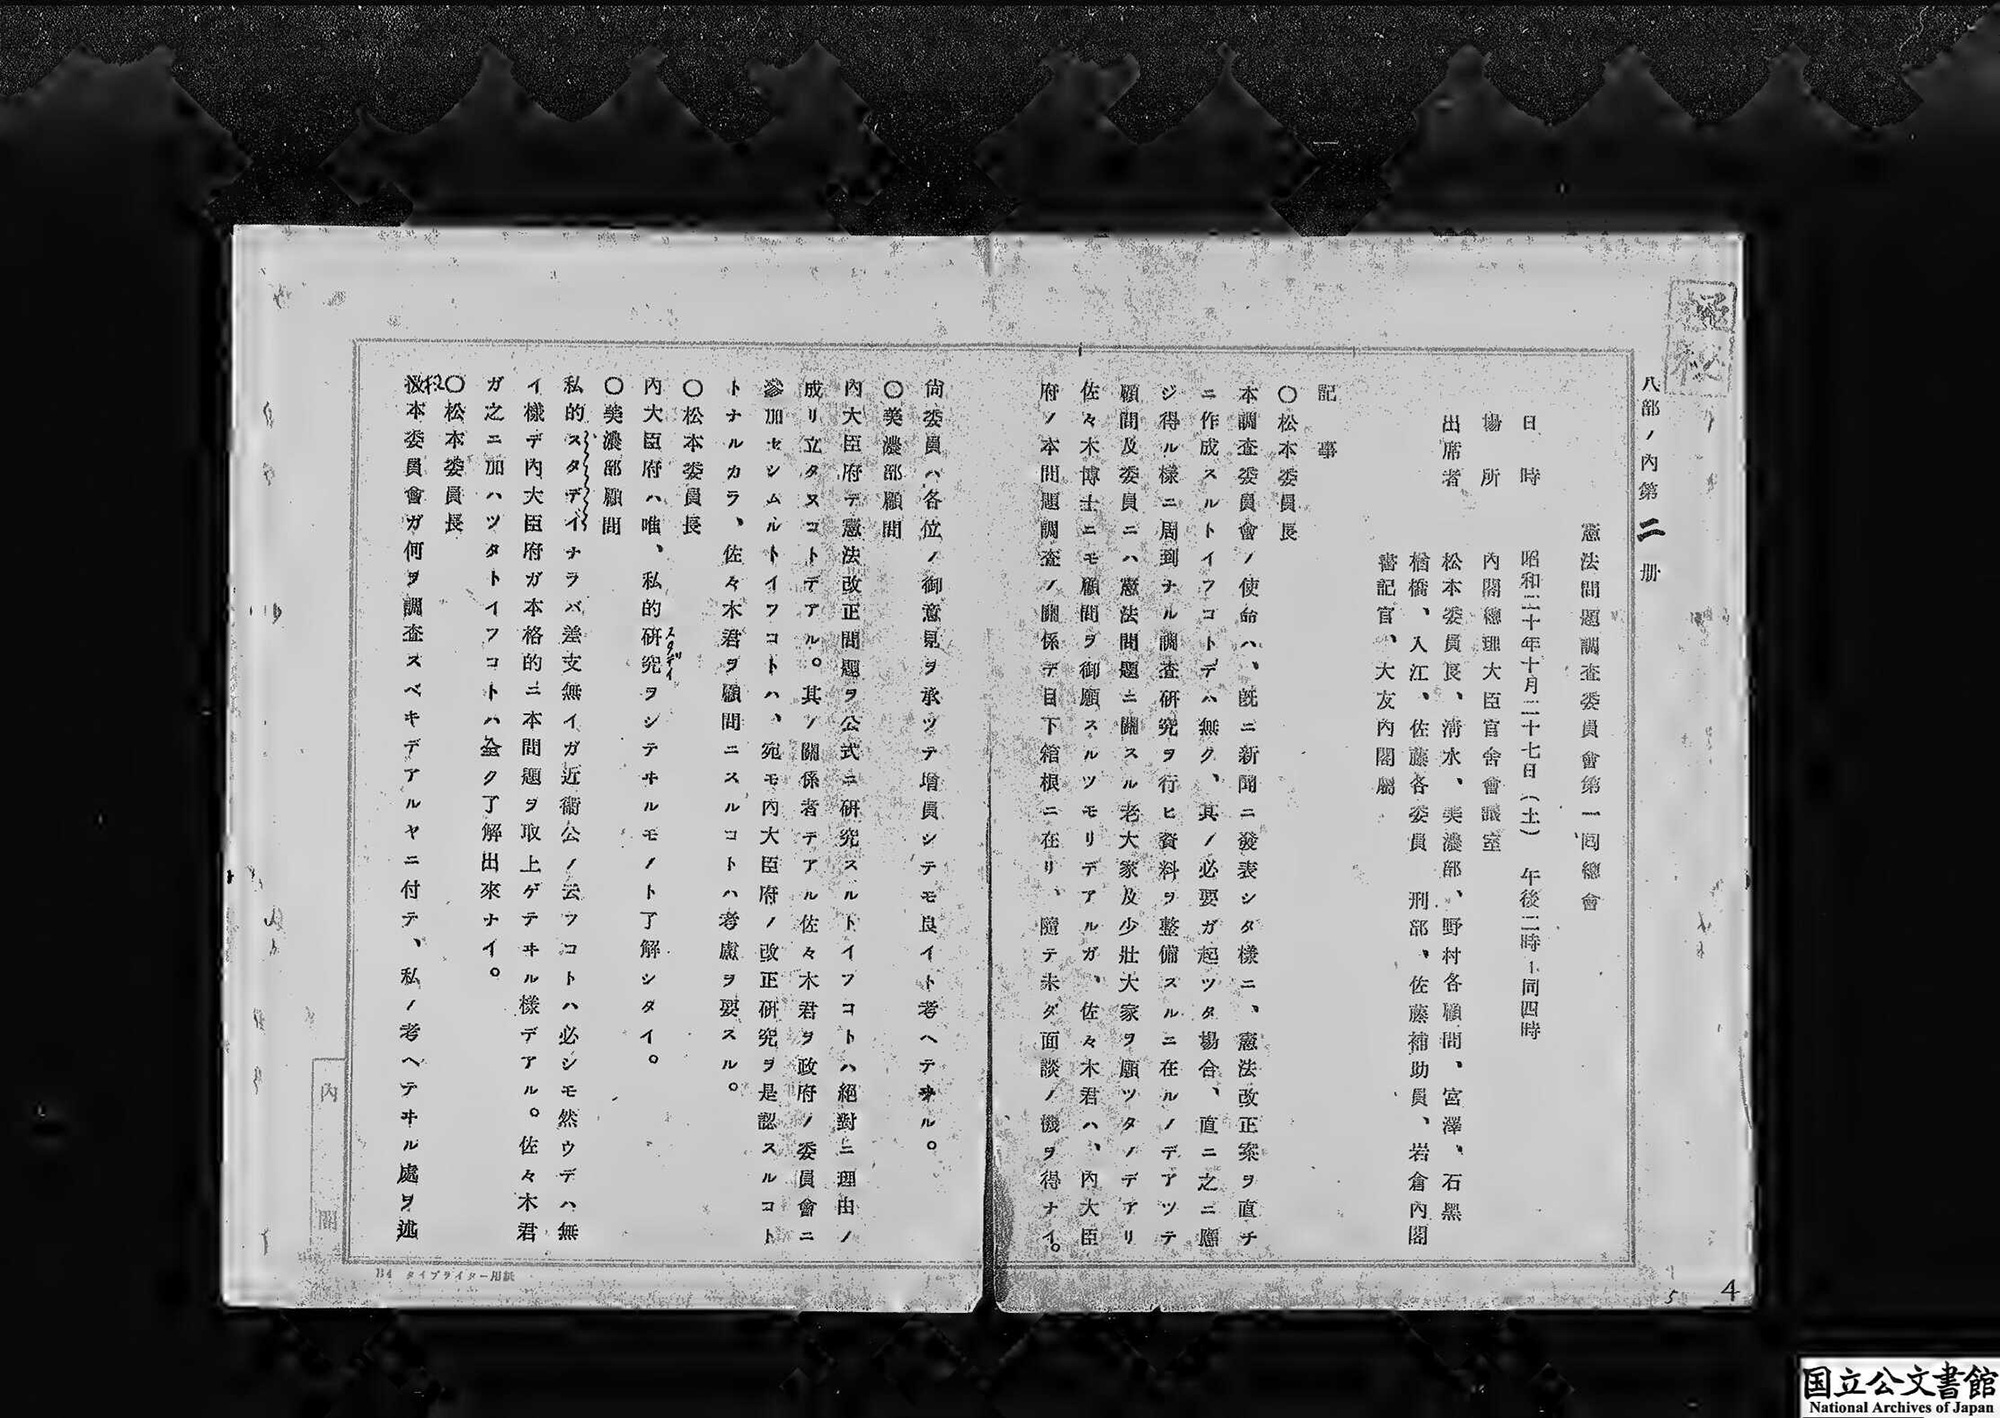 極秘
八部ノ內第二册
憲法問題調査委員會第一囘總會
日時 昭和二十年十月二十七日(土) 午後二時-同四時
場所 內閣總理大臣官舍會議室
出席者 松本委員長、淸水、美濃部、野村各顧問、宮澤、石黑
楢橋、入江、佐藤各委員 刑部、佐藤補助員、岩倉內閣
書記官、大友內閣屬
記事
〇松本委員長
本調査委員會ノ使命ハ、旣ニ新聞ニ發表シタ樣ニ、憲法改正案ヲ直チ
ニ作成スルトイフコトデハ無ク、其ノ必要ガ起ツタ場合、直ニ之ニ應
ジ得ル樣ニ周到ナル調査硏究ヲ行ヒ資料ヲ整備スルニ在ルノデアツテ
顧問及委員ニハ憲法問題ニ關スル老大家及少壯大家ヲ願ツタノデアリ
佐々木博士ニモ顧問ヲ御願スルツモリデアルガ、佐々木君ハ、內大臣
府ノ本問題調査ノ關係デ目下箱根ニ在リ、隨テ未ダ面談ノ機ヲ得ナイ。
尙委員ハ各位ノ御意見ヲ承ツテ增員シテモ良イト考ヘテヰル。
〇美濃部顧問
內大臣府デ憲法改正問題ヲ公式ニ硏究スルトイフコトハ絕對ニ理由ノ
成リ立タヌコトデアル。其ノ關係者デアル佐々木君ヲ政府ノ委員會ニ
參加セシムルトイフコトハ、宛モ內大臣府ノ改正硏究ヲ是認スルコト
トナルカラ、佐々木君ヲ顧問ニスルコトハ考慮ヲ要スル。
〇松本委員長
內大臣府ハ唯、私的硏究ヲシテヰルモノト了解シタイ。
スタディ
〇美濃部顧問
私的スタデイナラバ差支無イガ近衞公ノ云フコトハ必シモ然ウデハ無
イ樣デ內大臣府ガ本格的ニ本問題ヲ取上ゲテヰル樣デアル。佐々木君
ガ之ニ加ハツタトイフコトハ全ク了解出來ナイ。
〇松本委員長
扨本委員會ガ何ヲ調査スベキデアルヤニ付テ、私ノ考ヘテヰル處ヲ述
內閣
B4 タイプライター用紙
4
5
国立公文書館
National Archives of Japan